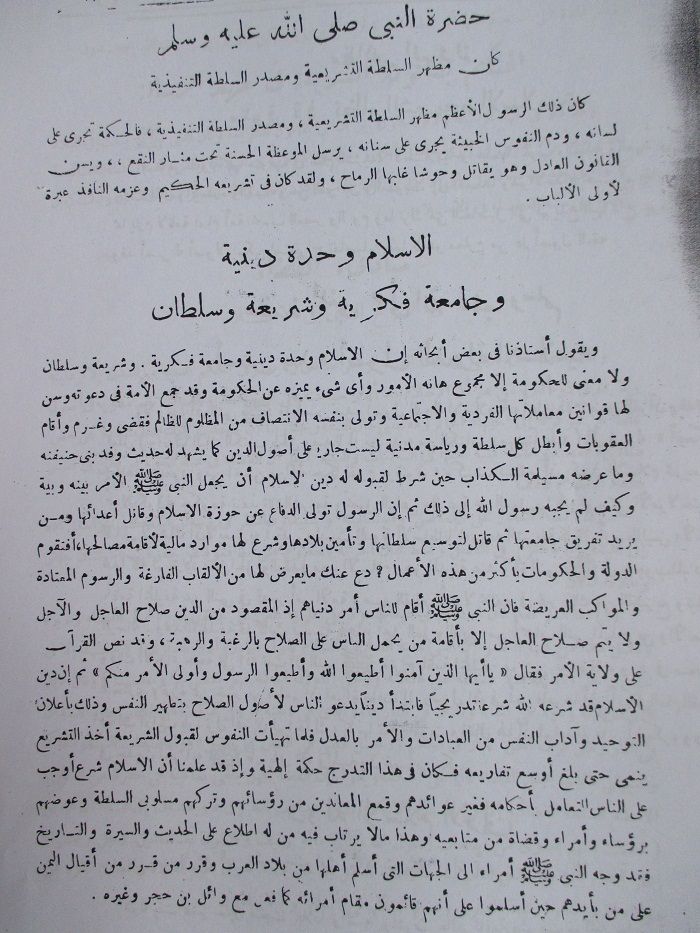 حضرة النبي صلى الله عليه وسلم
كان مظهر السلطة التشريعية ومصدر السلطة التنفيذية
كان ذلك الرسول الأعظم مظهر السلطة التشريعية ، ومصدر السلطة التنفيذية ، فالحكمة تجرى على
لسانه ، ودم النفوس الخبيثة يجرى على سنانه ، يرسل الموعظة الحسنة تحت مثار النقع ، ، ويسن
القانون العادل وهو يقاتل وحوشا غابها الرماح ، ولقد كان فى تشريعه الحكيم وعزمه النافذ عبرة
لأولى الألباب .
الاسلام وحدة دينية
وجامعة فكرية وشريعة وسلطان
ويقول أستاذنا فى بعض أبحاثه إن الاسلام وحدة دينية وجامعة فكرية . وشريعة وسلطان
ولا معنى للحكومة إلا مجموع هاته الأمور وأى شىء يميزه عن الحكومة وقد جمع الأمة فى دعوته وسن
لها قوانين معاملاتها الفردية والاجتماعية وتولى بنفسه الانتصاف من المظلوم للظالم فقضى وغرم وأقام
العقوبات وأبطل كل سلطة ورياسة مدنية ليست جارية على أصول الدين كما يشهد له حديث وفد بنى حنيفنه
وما عرضه مسيلمة الكذاب حين شرط لقبوله له دين الاسلام أن يجعل النبى ﷺ الأمر بينه وبية
وكيف لم يجبه رسول الله إلى ذلك ثم إن الرسول تولى الدفاع عن حوزة الاسلام وقاتل أعدائها ومن
يريد تفريق جامعتها ثم قاتل لتوسيع سلطانها وتأمين بلادها وشرع لها موارد مالية لأقامة مصالحها، أفتقوم
الدولة والحكومات بأكثر من هذه الأعمال ? دع عنك مايعرض لها من الألقاب الفارغة والرسوم المعتادة
والمواكب العريضة فان النبى ﷺ أقام للناس أمر دنياهم إذ المقصود من الدين صلاح العاجل والآجل
ولا يتم صلاح العاجل إلا بأقامة من يحمل الناس على الصلاح بالرغبة والرهبة ، وقد نص القرآن
على ولاية الأمر فقال « ياأيها الذين آمنوا أطيعوا الله وأطيعوا الرسول وأولى الأمر منكم » ثم إن دين
الاسلام قد شرعه الله شرعة تدريجياً فابتدأ ديناً يدعو الناس لأصول الصلاح بتطهير النفس وذلك بأعلان
التوحيد وآداب النفس من العبادات والأمر بالعدل فلما تهيأت النفوس لقبول الشريعة أخذ التشريع
ينمى حتى بلغ أوسع تفاريعه فكان فى هذا التدرج حكمة إلهية وإذ قد علمنا أن الاسلام شرع أوجب
على الناس التعامل بأحكامه فغير عوائدهم وقمع المعاندين من رؤسائهم وتركهم مسلوبى السلطة وعوضهم
برؤساء وأمراء وقضاة من متابعيه وهذا مالا يرتاب فيه من له اطلاع على الحديث والسيرة والتاريخ
فقد وجه النبى ﷺ أمراء الى الجهات التى أسلم أهلها من بلاد العرب وقرر من قرر من أقيال اليمن
على من بأيدهم حين أسلموا على أنهم قائمون مقام أمرائه كما فعل مع وائل بن حجر وغيره .